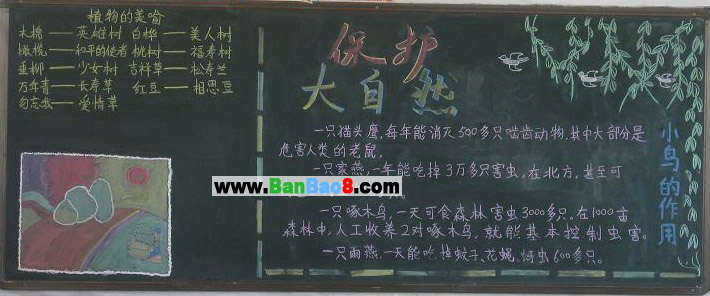 植物的美喻
木棉——英雄树 白桦——美人树
橄榄——和平的使者 桃树——福寿树
垂柳——少女树 吉祥草——松寿兰
万年青——长寿草 红豆——相思豆
勿忘我——爱情草
保护
大自然
一只猫头鹰,每年能消灭500多只啮齿动物,其中大部分是
危害人类的老鼠,
一只家燕,一年能吃掉3万多只害虫,在北方,甚至可
www.BanBao8.com
一只啄木鸟,一天可食森林害虫3000多只。在1000亩
森林中,人工收养2对啄木鸟,就能基本控制虫害。
一只雨燕,一天能吃掉蚊子、花蝇、蚜虫600多只。
小鸟的作用